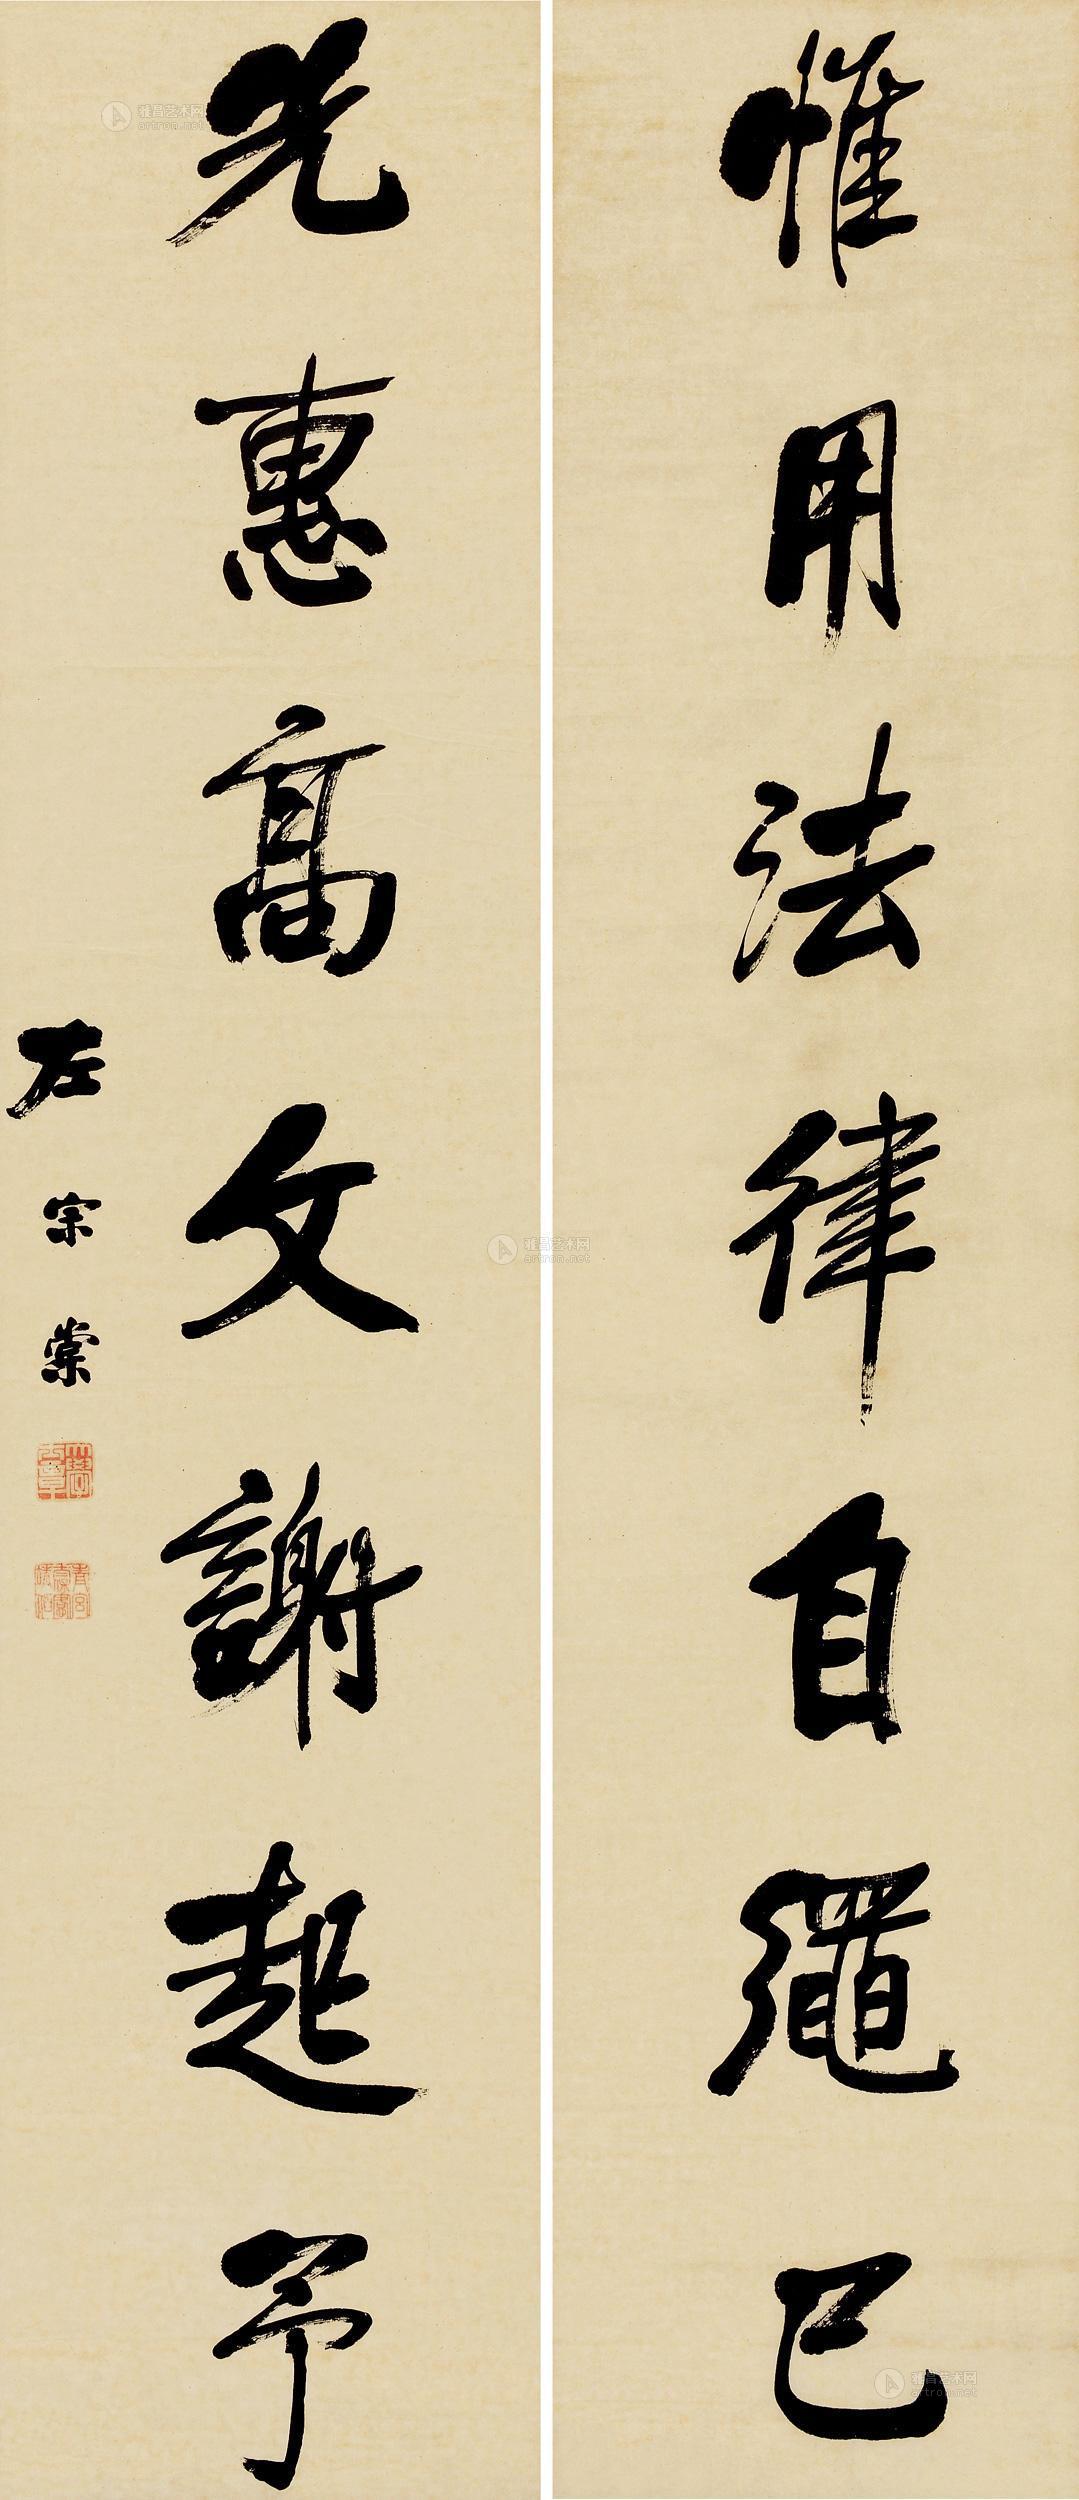 惟用法律自繩己
光惠高文謝起予
左宗棠
雅昌艺术网
artron.net
雅昌艺术网
artron.net
雅昌艺术网
artron.net